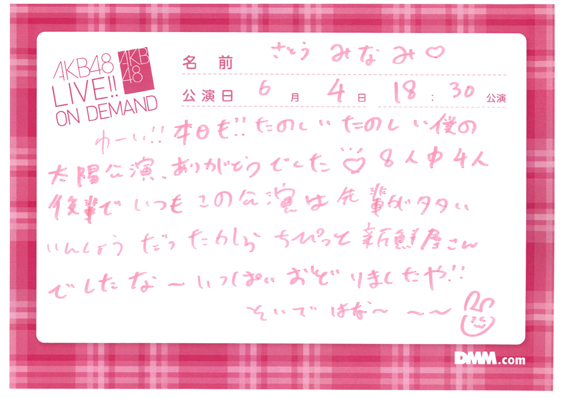 AKB48
LIVE!!
ON DEMAND
AKB
48
名前 さとう みなみ♡
公演日 6月 4日 18:30公演
わーい!! 本日も!! たのしいたのしい僕の
太陽公演、ありがとうでした♡ 8人中4人
後輩で いつもこの公演は先輩がタタい
いんしょうだったから ちぴっと新鮮屋さん
でしたな〜 いっぱいおどりましたや!!
そいでばな〜〜〜
DMM.com